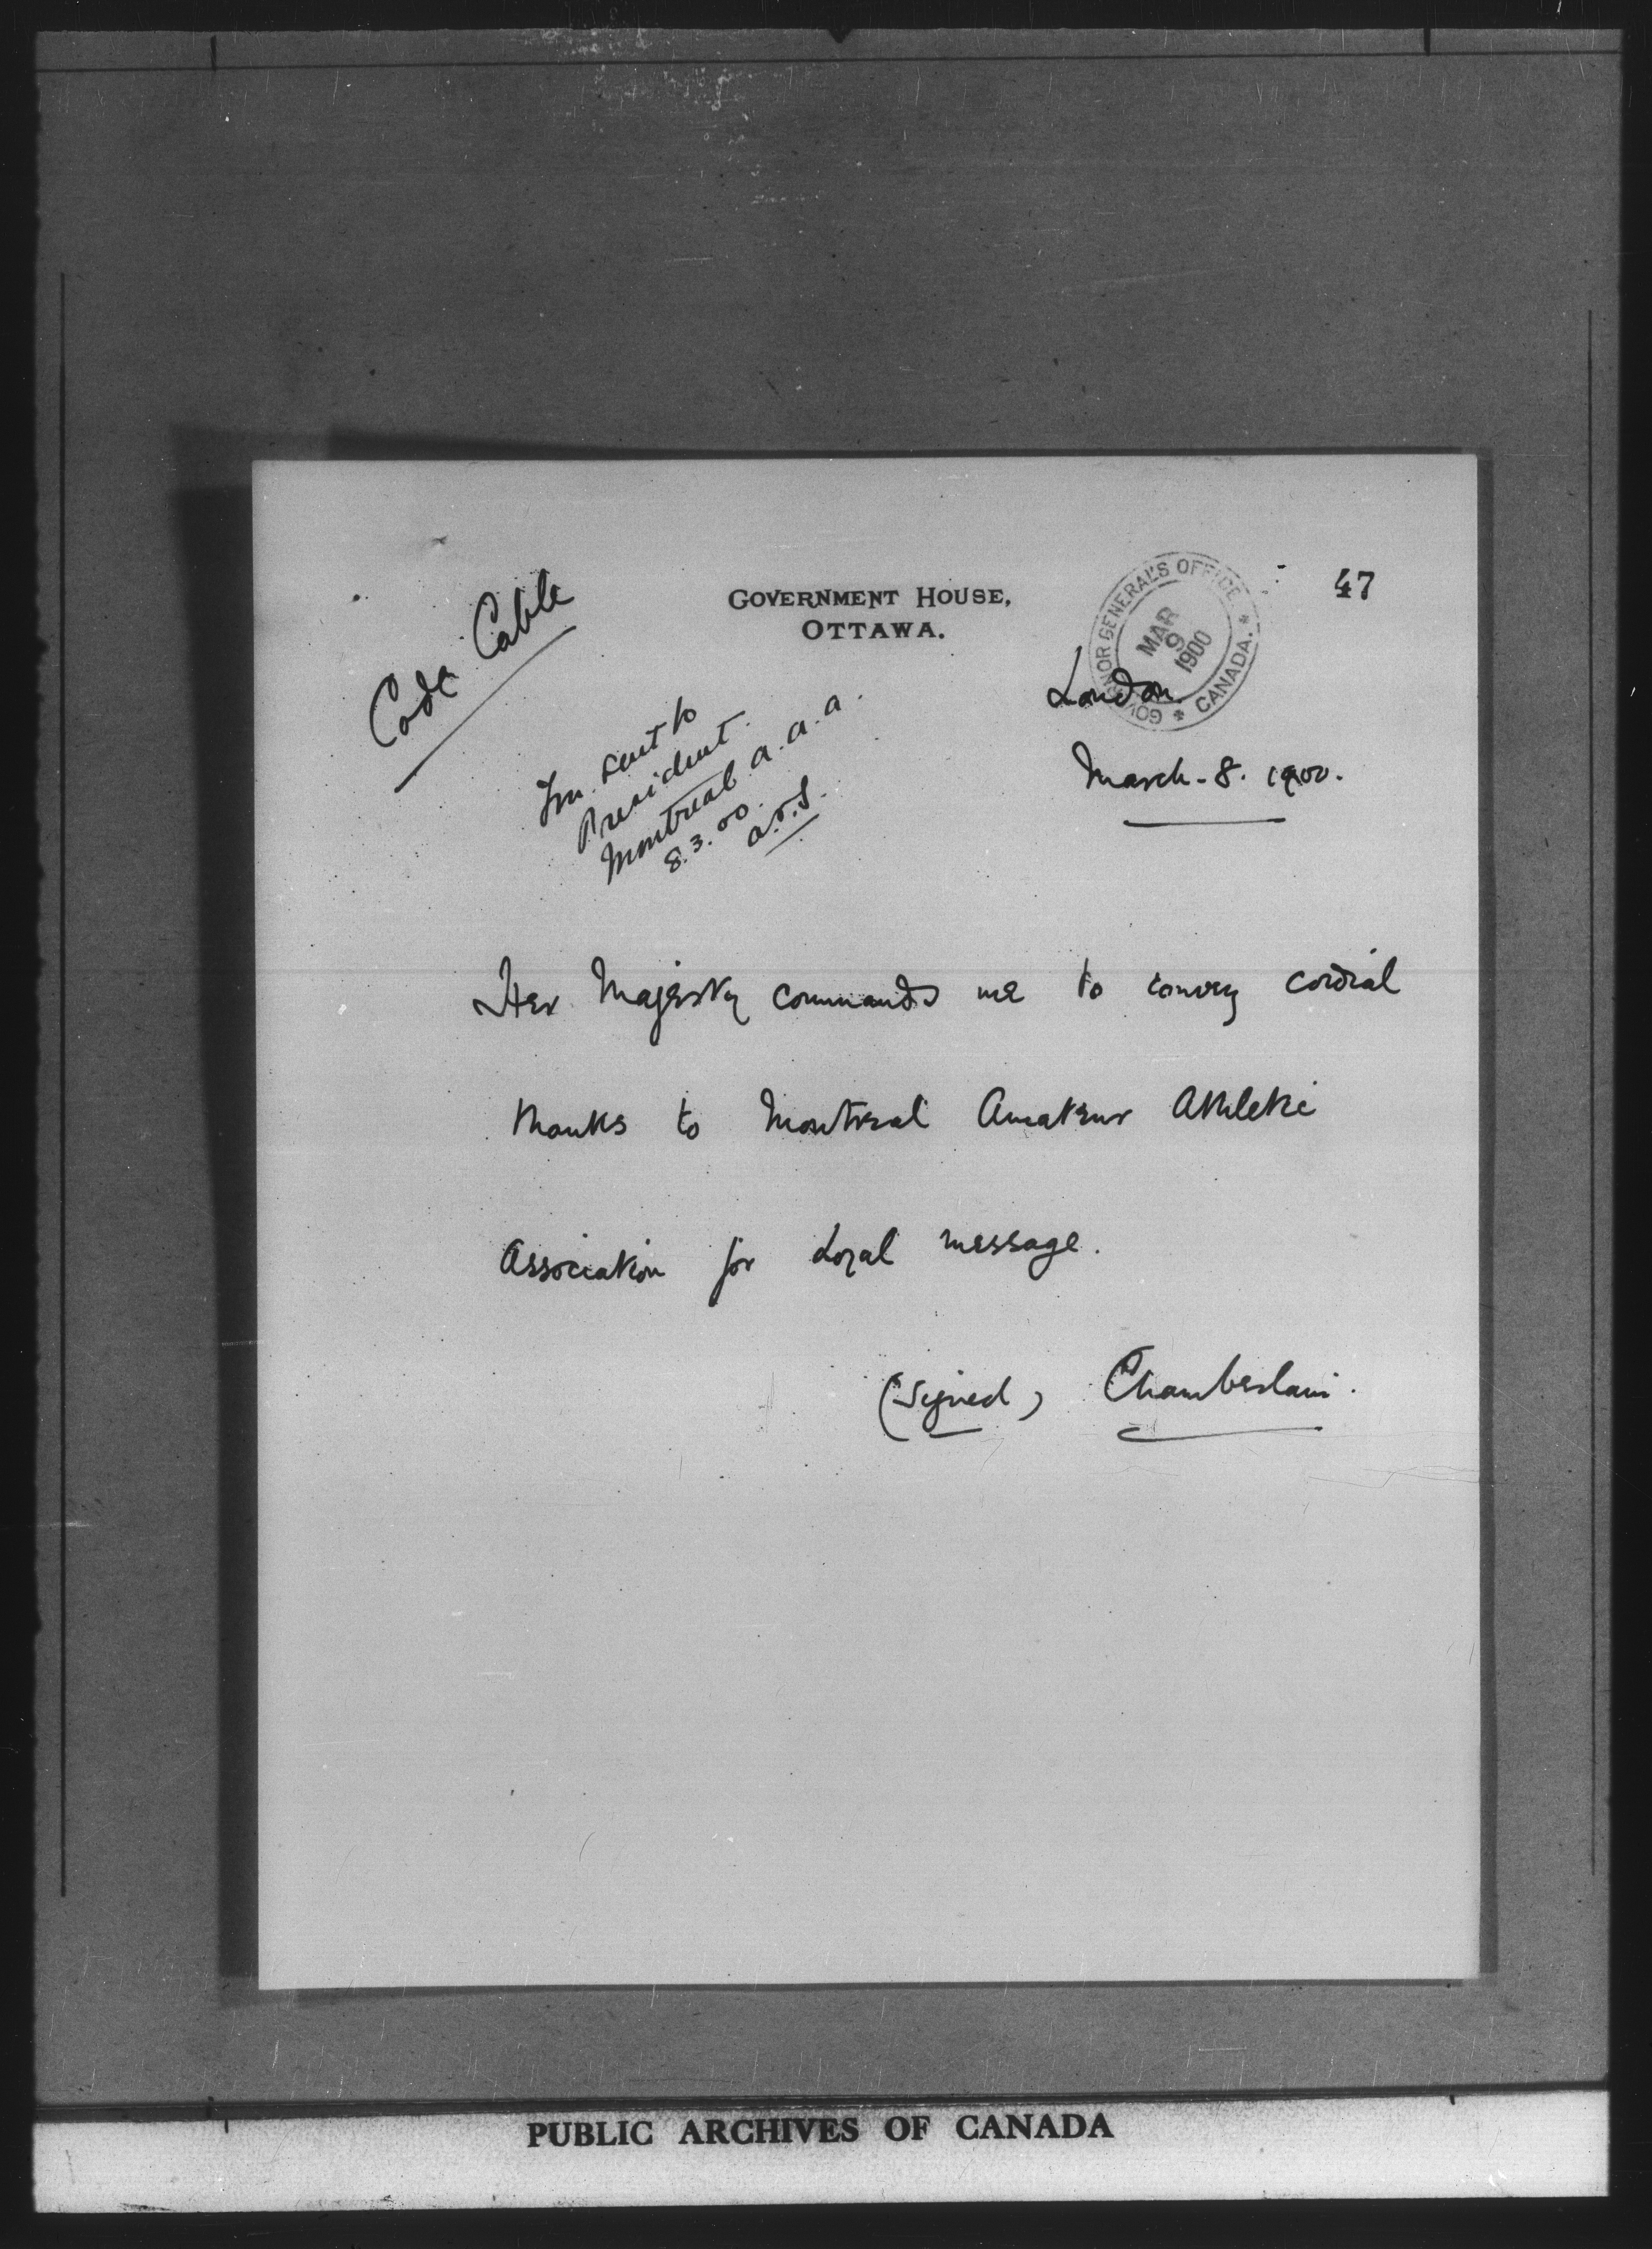 47
GOVERNMENT HOUSE,
OTTAWA.
GOVERNOR GENERAL'S OFFICE
* CANADA. *
MAR
9
1900
Code Cable
London
March - 8. 1900.
sent to
President.
Montreal a.a.a.
8.3.00.
Her Majesty commands me to convey cordial
thanks to Montreal Amateur Athletic
Association for loyal message.
(Signed) Chamberlain.
PUBLIC ARCHIVES OF CANADA